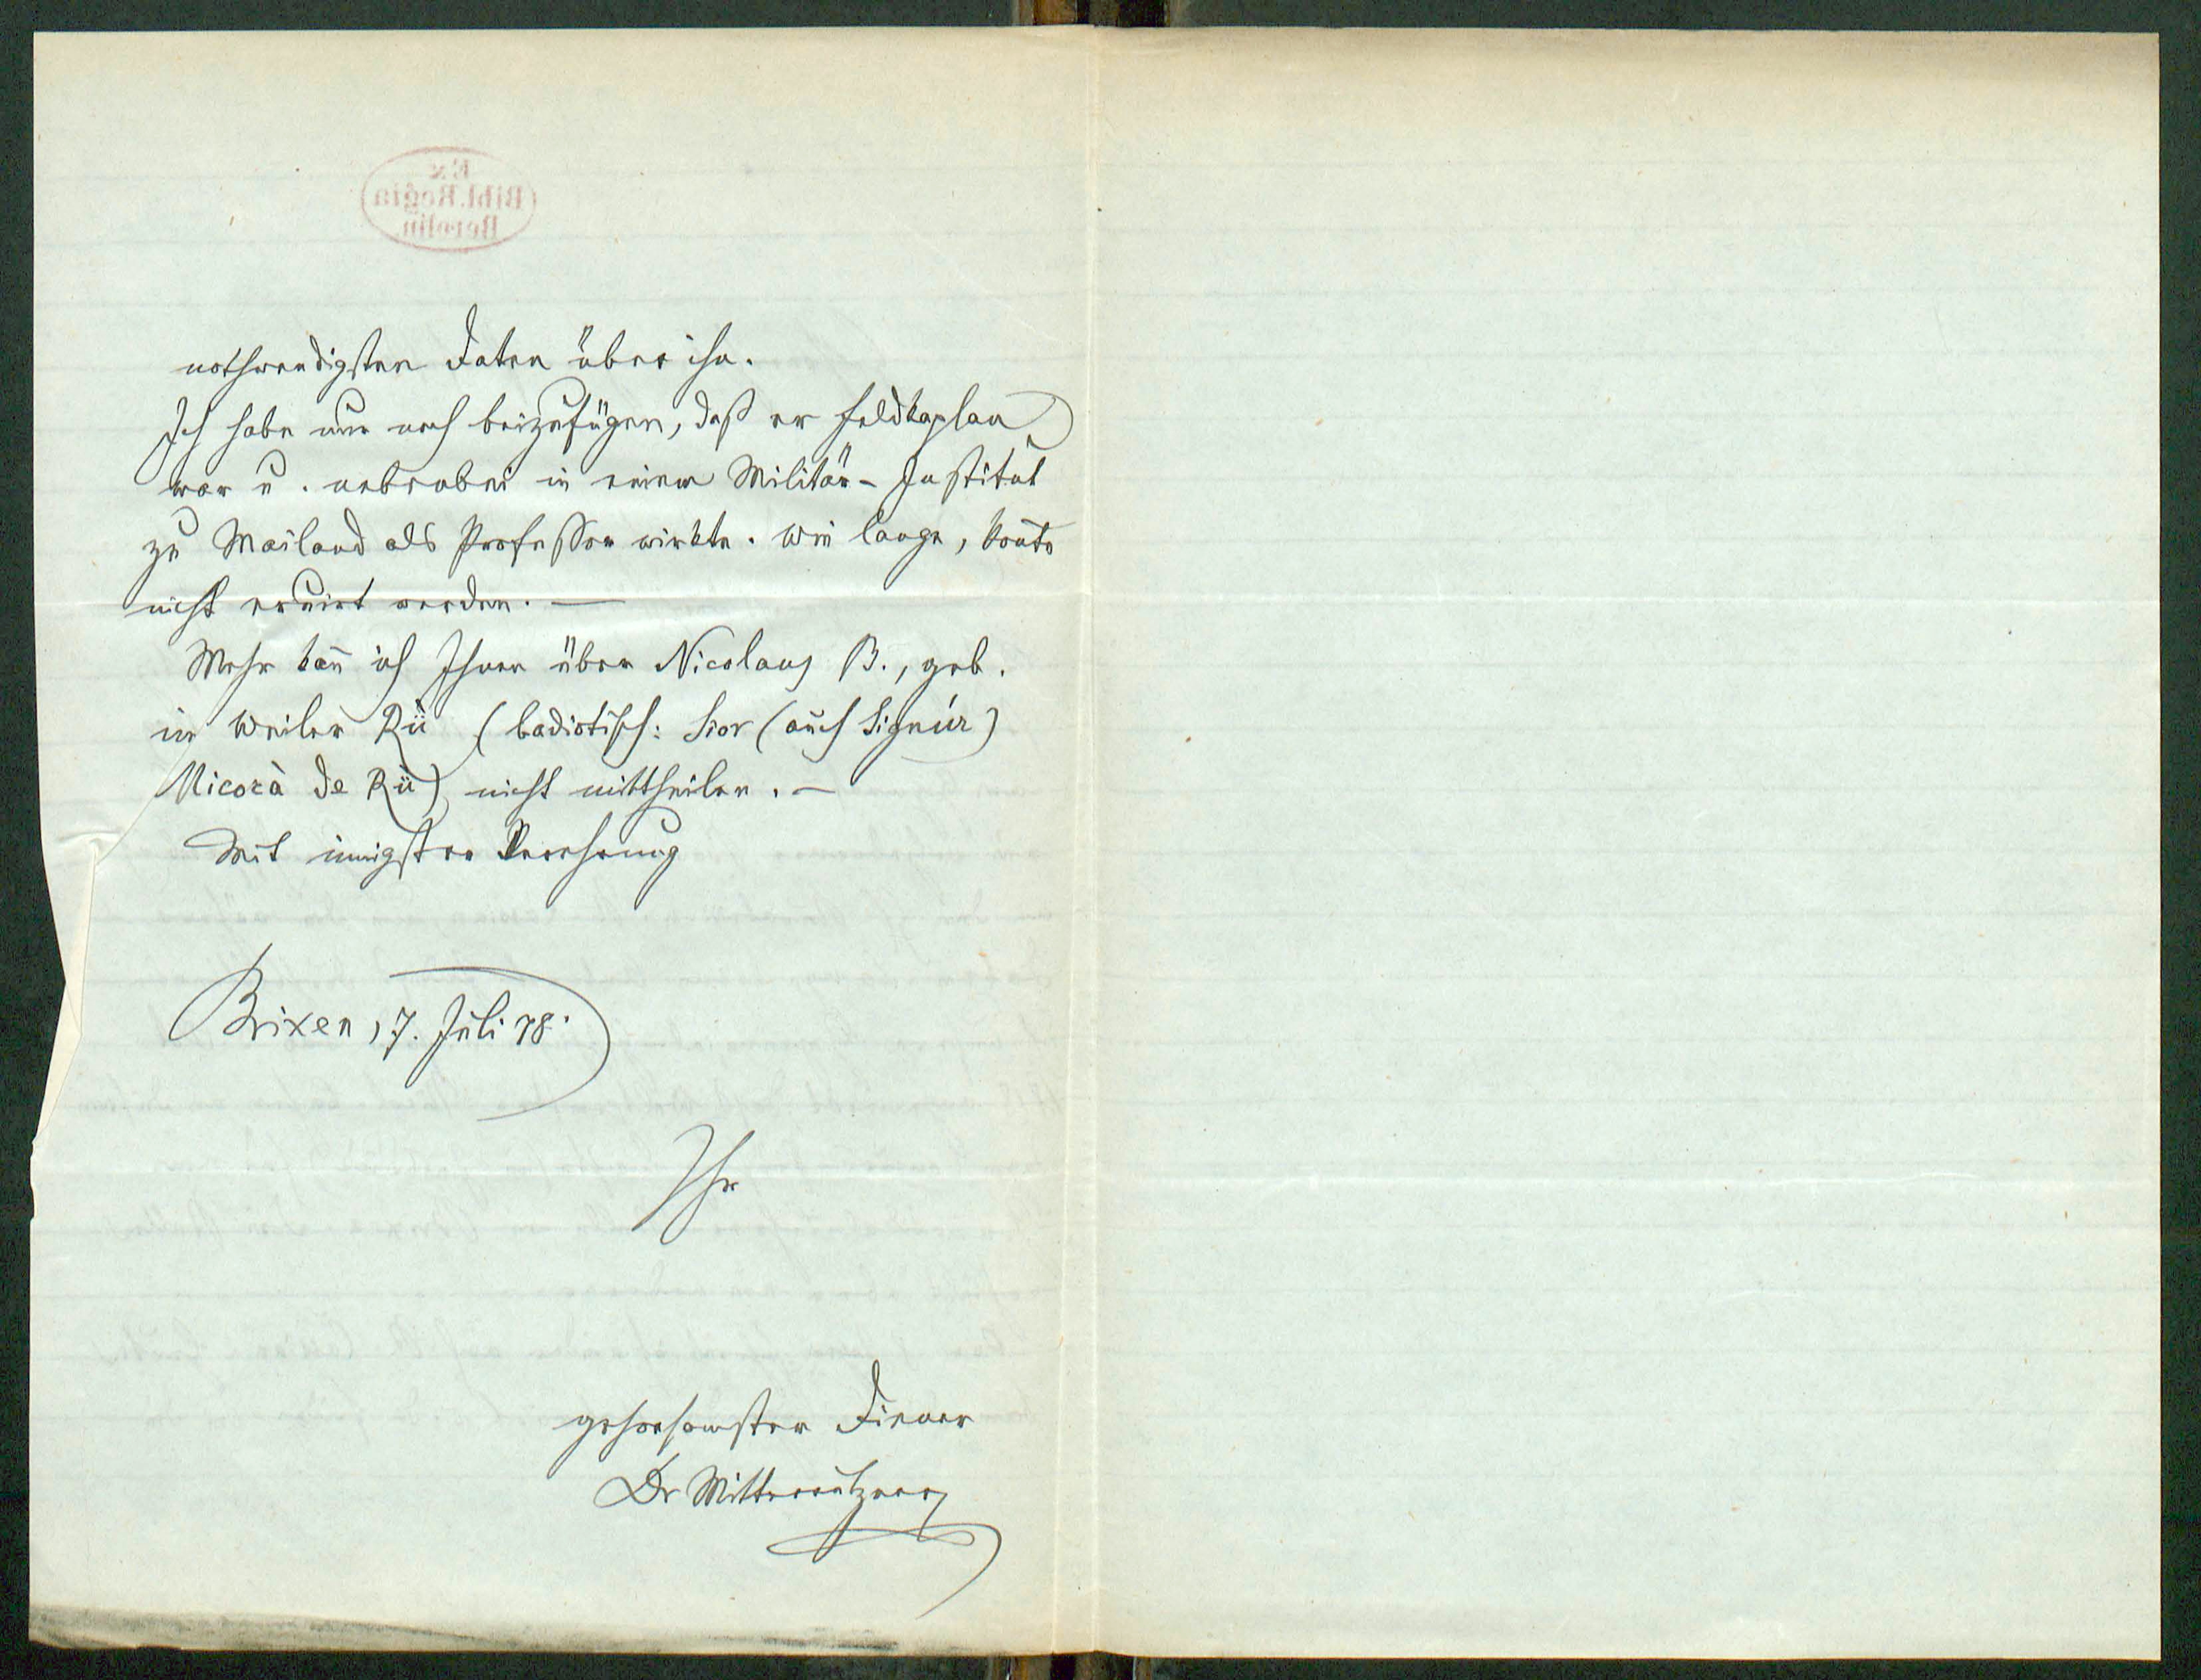 Ex
Bibl. Regia
Berolin.
nothwendigsten Daten über ihn.
Ich habe nur noch beizufügen, daß er Feldkaplan
war u. nebenbei in einem Militär-Institut
zu Mailand als Professor wirkte. Wie lange, kon̄te
nicht eruirt werden. —
Mehr kan̄ ich Ihnen über Nicolaus B., geb.
in Weiler Rü (badiotisch: Sior (auch Signúr)
Micorà de Rü) nicht mittheilen. —
Mit innigster Verehrung
Brixen, 7. Juli 78.
Ihr
gehorsamster Diener
Dr Mitterrutzner